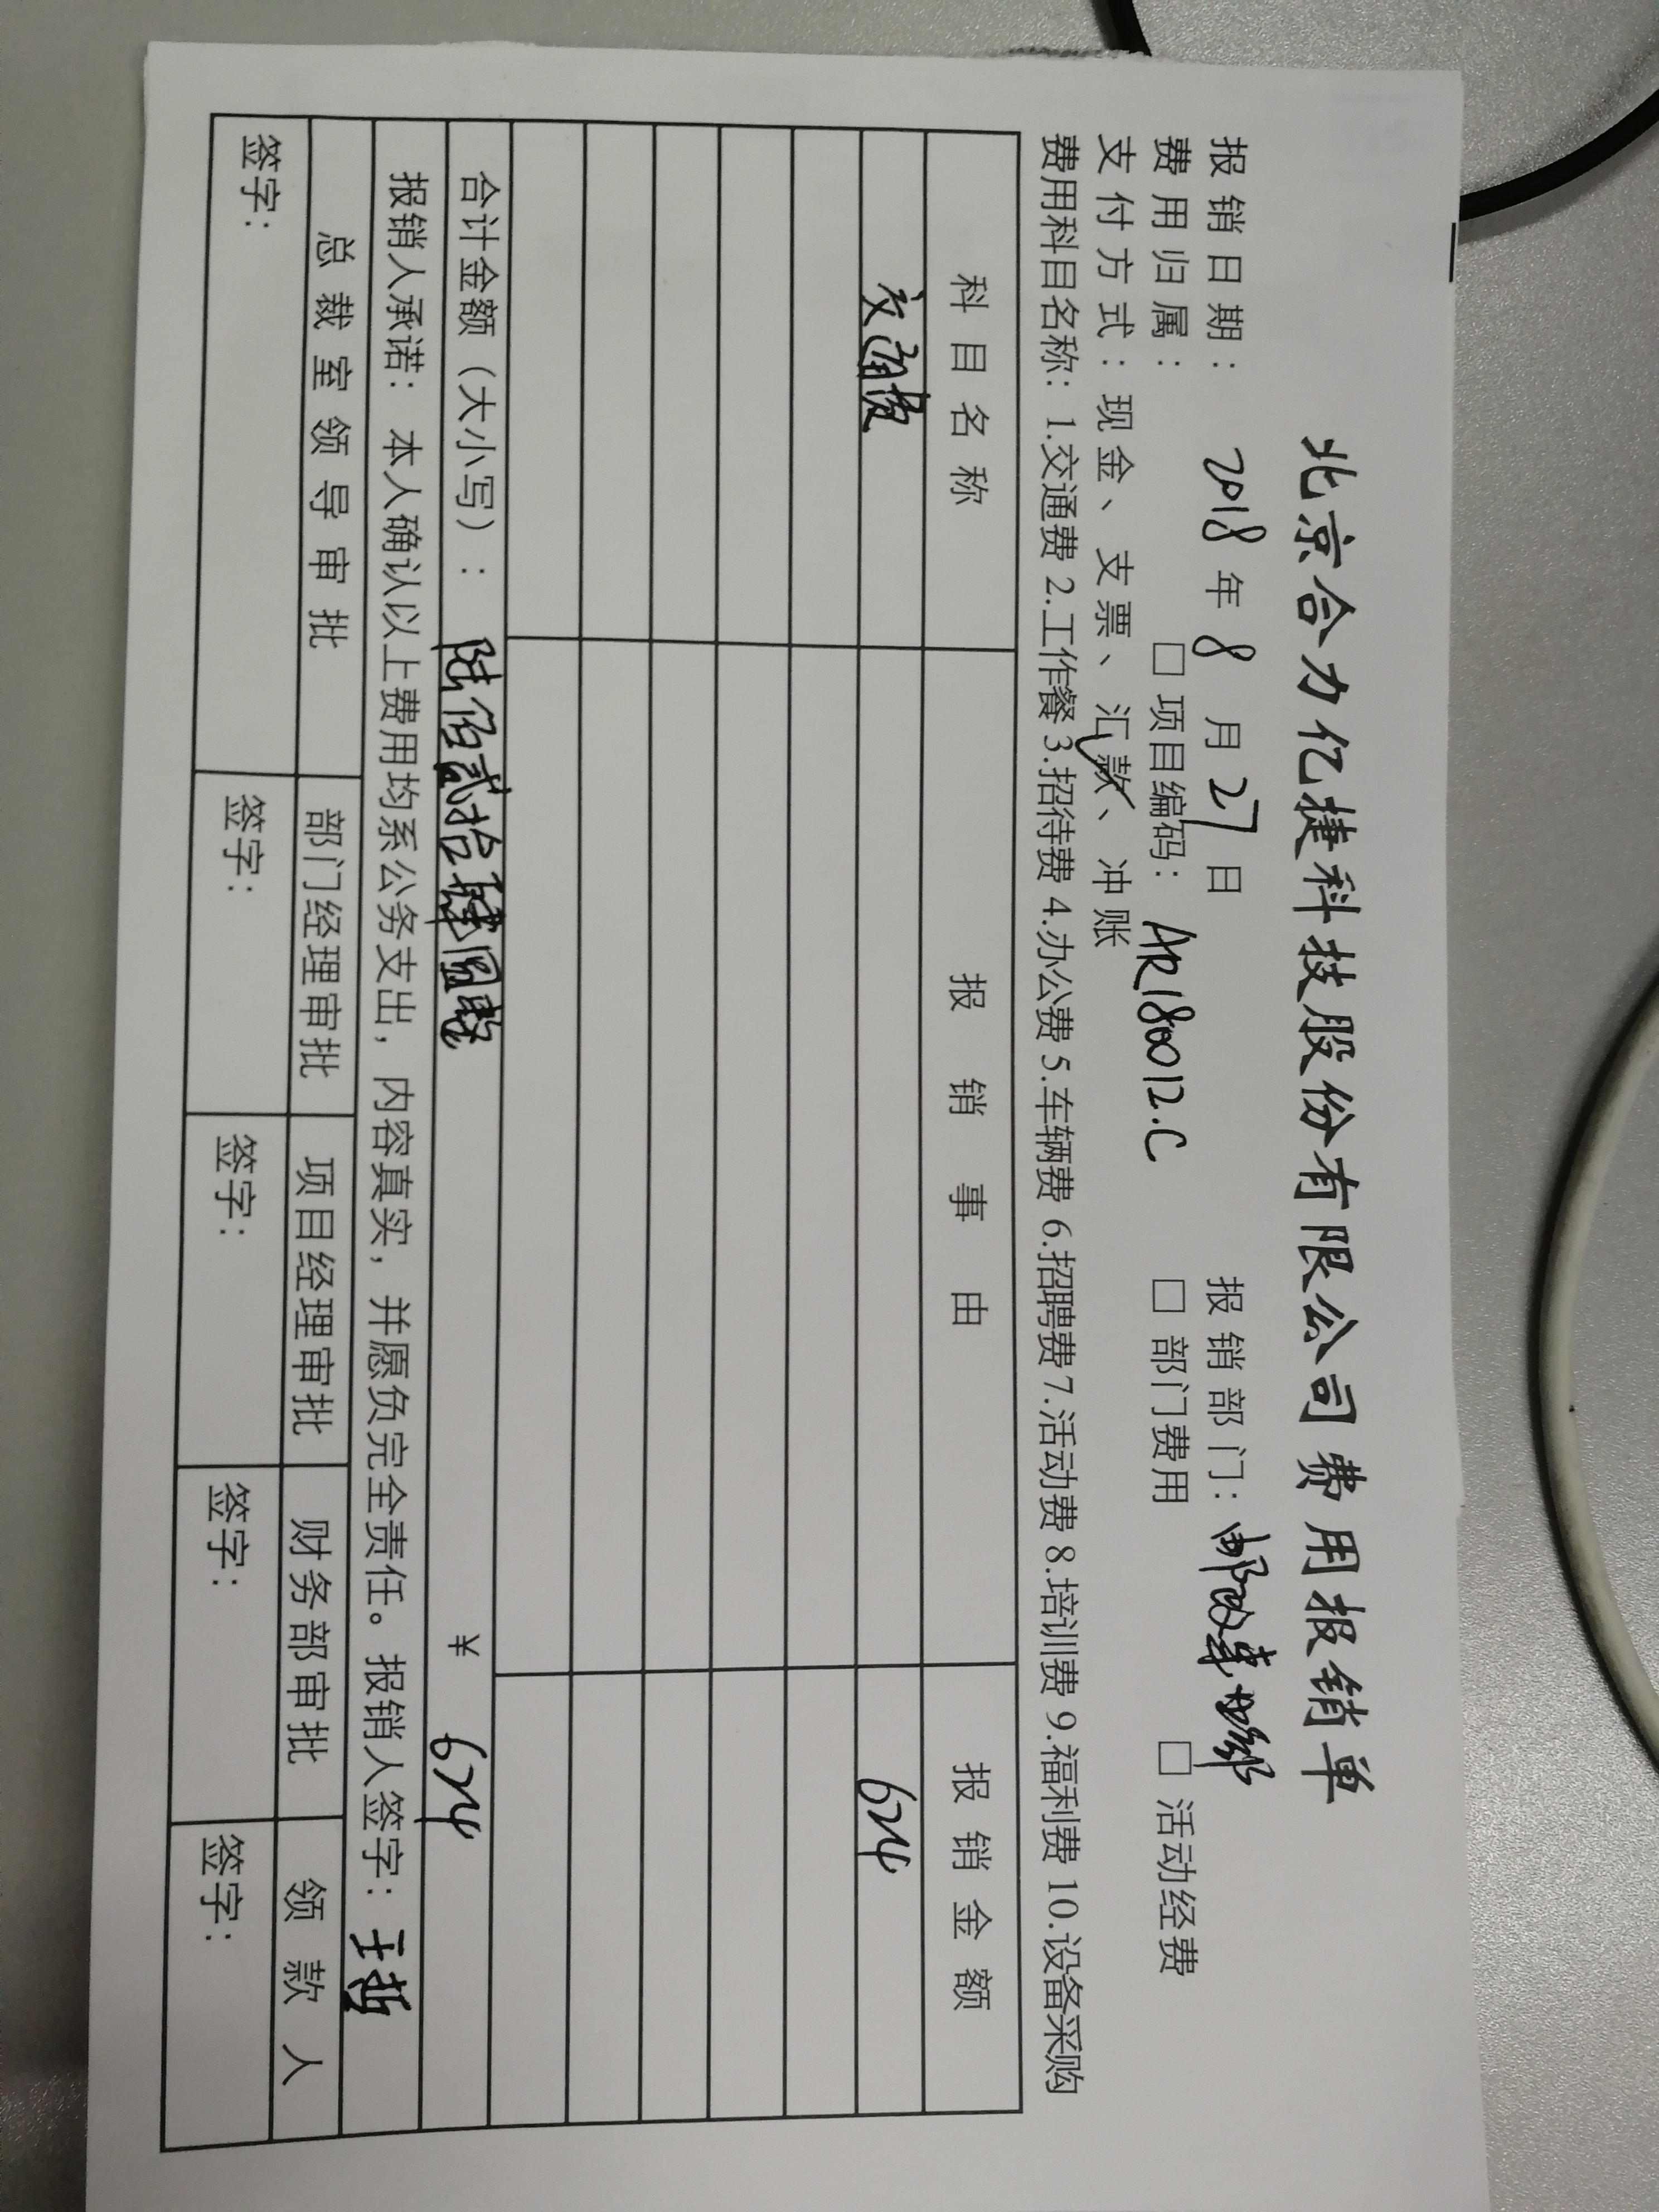 北京合力亿捷科技股份有限公司费用报销单
报销日期: 2018年8月27日 报销部门:
费用归属: □项目编码: AR180012.C □部门费用 □活动经费
支付方式:现金、支票、汇款、冲账
费用科目名称: 1.交通费 2.工作餐 3.招待费 4.办公费 5.车辆费 6.招聘费 7.活动费 8.培训费 9.福利费 10.设备采购
科目名称 报销事由 报销金额
交通费 624
合计金额(大小写): 陆佰贰拾肆圆整 ¥ 624
报销人承诺: 本人确认以上费用均系公务支出,内容真实,并愿负完全责任。报销人签字: 王哲
总裁室领导审批 部门经理审批 项目经理审批 财务部审批 领款人
签字: 签字: 签字: 签字: 签字: